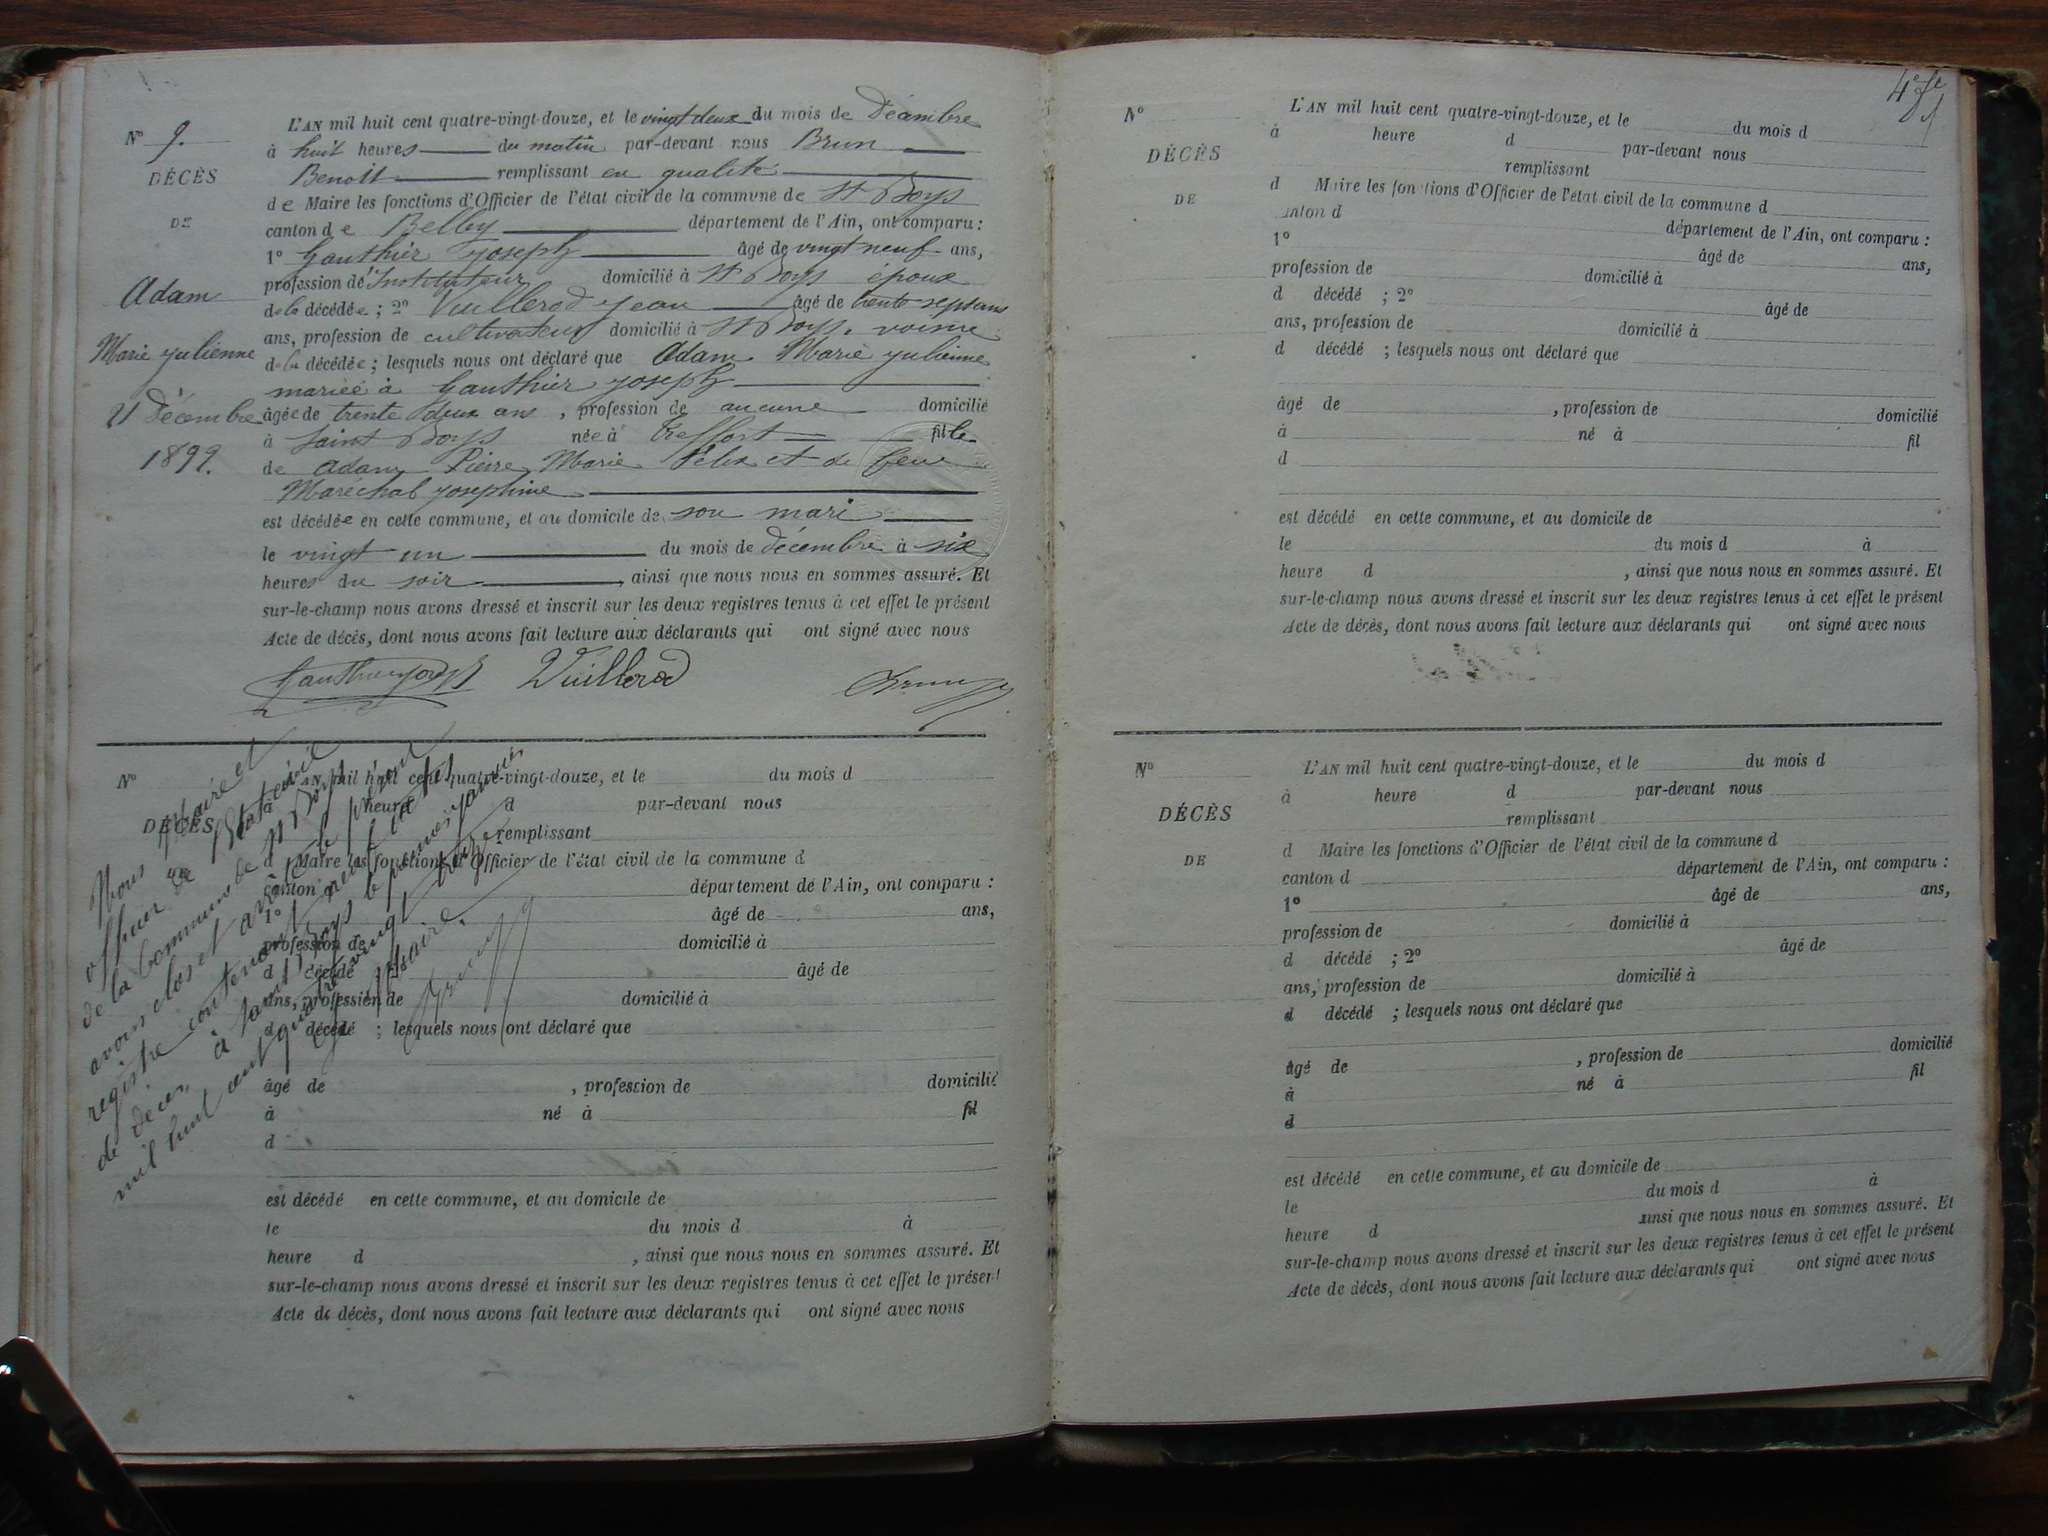 N° 9.
DÉCÈS
DE
Adam
Marie Julienne
21 Décembre
1892.
L'AN mil huit cent quatre-vingt-douze, et le vingt deux du mois de Décembre
à huit heures du matin par-devant nous Brun
Benoit remplissant en qualité
de Maire les fonctions d'Officier de l'état civil de la commune de St Boys
canton de Belley département de l'Ain, ont comparu :
1° Gauthier Joseph âgé de vingt neuf ans,
profession d'Instituteur domicilié à St Boys époux
de la décédée ; 2° Vuillerod Jean âgé de trente sept ans
ans, profession de cultivateur domicilié à St Boys, voisin
de la décédée ; lesquels nous ont déclaré que Adam Marie Julienne
mariée à Gauthier Joseph
âgée de trente deux ans, profession de aucune domicilié
à Saint Boys née à Treffort fille
de Adam Pierre Marie Félix et de feue
Maréchal Josephine
est décédée en cette commune, et au domicile de son mari
le vingt un du mois de décembre à six
heures du soir, ainsi que nous nous en sommes assuré. Et
sur-le-champ nous avons dressé et inscrit sur les deux registres tenus à cet effet le présent
Acte de décès, dont nous avons fait lecture aux déclarants qui ont signé avec nous
Gauthier Joseph Vuillerod Brun
N°
DÉCÈS
DE
L'AN mil huit cent quatre-vingt-douze, et le du mois d
à heure d par-devant nous
remplissant
d Maire les fonctions d'Officier de l'état civil de la commune d
canton d département de l'Ain, ont comparu :
1° âgé de ans,
profession de domicilié à
d décédé ; 2° âgé de
ans, profession de domicilié à
d décédé ; lesquels nous ont déclaré que
âgé de , profession de domicilié
à né à fil
d
est décédé en cette commune, et au domicile de
le du mois d à
heure d , ainsi que nous nous en sommes assuré. Et
sur-le-champ nous avons dressé et inscrit sur les deux registres tenus à cet effet le présent
Acte de décès, dont nous avons fait lecture aux déclarants qui ont signé avec nous
Nous Maire et
officier de l'Etat civil
de la Commune de St Boys
avons clos et arrêté le présent
registre contenant neuf actes
de décès, à Saint Boys le premier Janvier
mil huit cent quatre vingt treize
Le Maire,
Brun
4e ft
N°
DÉCÈS
DE
L'AN mil huit cent quatre-vingt-douze, et le du mois d
à heure d par-devant nous
remplissant
d Maire les fonctions d'Officier de l'état civil de la commune d
canton d département de l'Ain, ont comparu :
1° âgé de ans,
profession de domicilié à
d décédé ; 2° âgé de
ans, profession de domicilié à
d décédé ; lesquels nous ont déclaré que
âgé de , profession de domicilié
à né à fil
d
est décédé en cette commune, et au domicile de
le du mois d à
heure d , ainsi que nous nous en sommes assuré. Et
sur-le-champ nous avons dressé et inscrit sur les deux registres tenus à cet effet le présent
Acte de décès, dont nous avons fait lecture aux déclarants qui ont signé avec nous
N°
DÉCÈS
DE
L'AN mil huit cent quatre-vingt-douze, et le du mois d
à heure d par-devant nous
remplissant
d Maire les fonctions d'Officier de l'état civil de la commune d
canton d département de l'Ain, ont comparu :
1° âgé de ans,
profession de domicilié à
d décédé ; 2° âgé de
ans, profession de domicilié à
d décédé ; lesquels nous ont déclaré que
âgé de , profession de domicilié
à né à fil
d
est décédé en cette commune, et au domicile de
le du mois d à
heure d ainsi que nous nous en sommes assuré. Et
sur-le-champ nous avons dressé et inscrit sur les deux registres tenus à cet effet le présent
Acte de décès, dont nous avons fait lecture aux déclarants qui ont signé avec nous